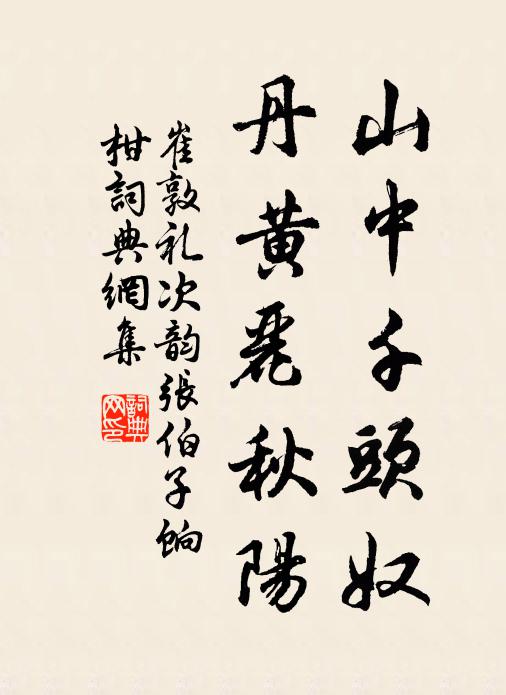 山中千頭奴
丹黃麗秋陽
崔敦礼次韵張伯子餉
柑詞典網集
詞典
网印